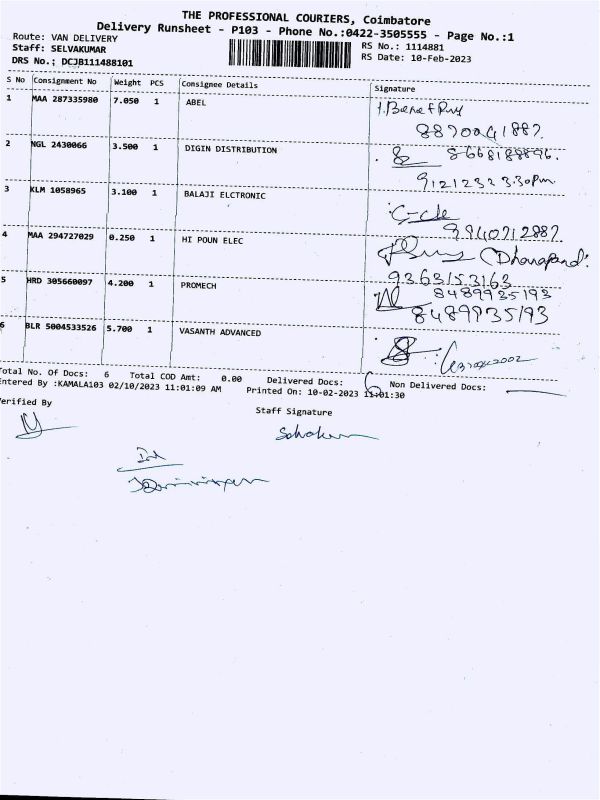 THE PROFESSIONAL COURIERS, Coimbatore
Delivery Runsheet - P103 - Phone No.:0422-3505555 - Page No.:1
Route: VAN DELIVERY
RS No.: 1114881
Staff: SELVAKUMAR
RS Date: 10-Feb-2023
DRS No.; DCJB111488101
S No Consignment No Weight PCS Consignee Details Signature
1 MAA 287335980 7.050 1 ABEL
2 NGL 2430066 3.500 1 DIGIN DISTRIBUTION
8668188896.
3 KLM 1058965 3.100 1 BALAJI ELCTRONIC
4 MAA 294727029 0.250 1 HI POUN ELEC
5 HRD 305660097 4.200 1 PROMECH
8489935193
8489935193
6 BLR 5004533526 5.700 1 VASANTH ADVANCED
Total No. Of Docs: 6 Total COD Amt: 0.00 Delivered Docs: 6 Non Delivered Docs:
Entered By :KAMALA103 02/10/2023 11:01:09 AM Printed On: 10-02-2023 11:01:30
Verified By
Staff Signature